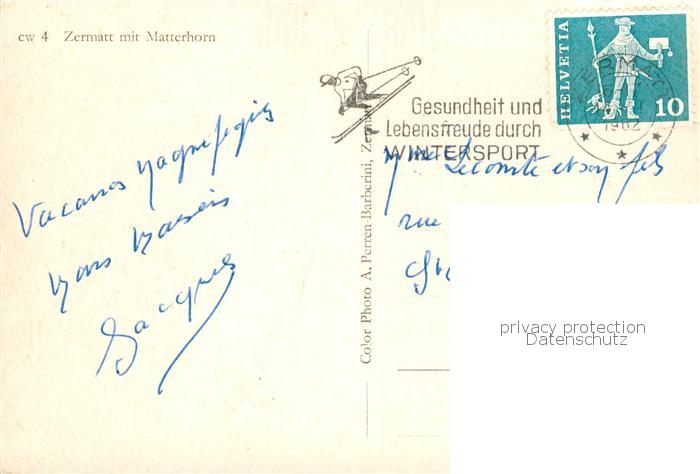 cw 4 Zermatt mit Matterhorn
Vacances magnifiques
Bons baisers
Jacques
Color Photo A. Perren-Barberini, Zermatt
Gesundheit und
Lebensfreude durch
WINTERSPORT
HELVETIA
10
ZERMATT
1962
Mme Lecomte et son fils
rue
privacy protection
Datenschutz